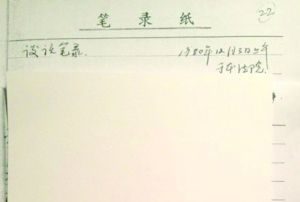 笔录纸
22
谈话笔录 1980年12月3日上午
于本法院